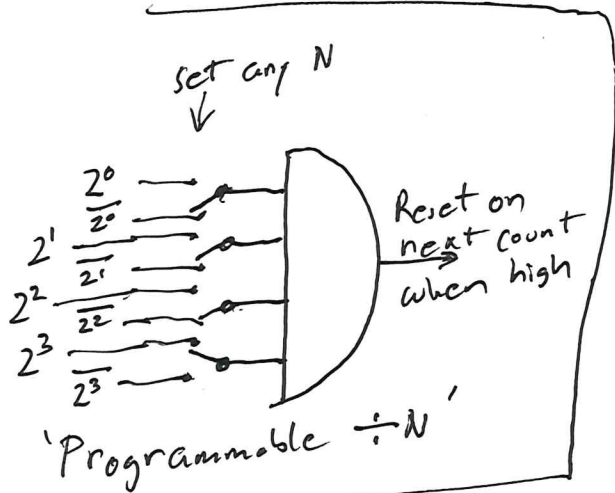 set any N
2⁰
2̅⁰̅
2¹
2̅¹̅
2²
2̅²̅
2³
2̅³̅
Reset on
next count
when high
'Programmable ÷N'